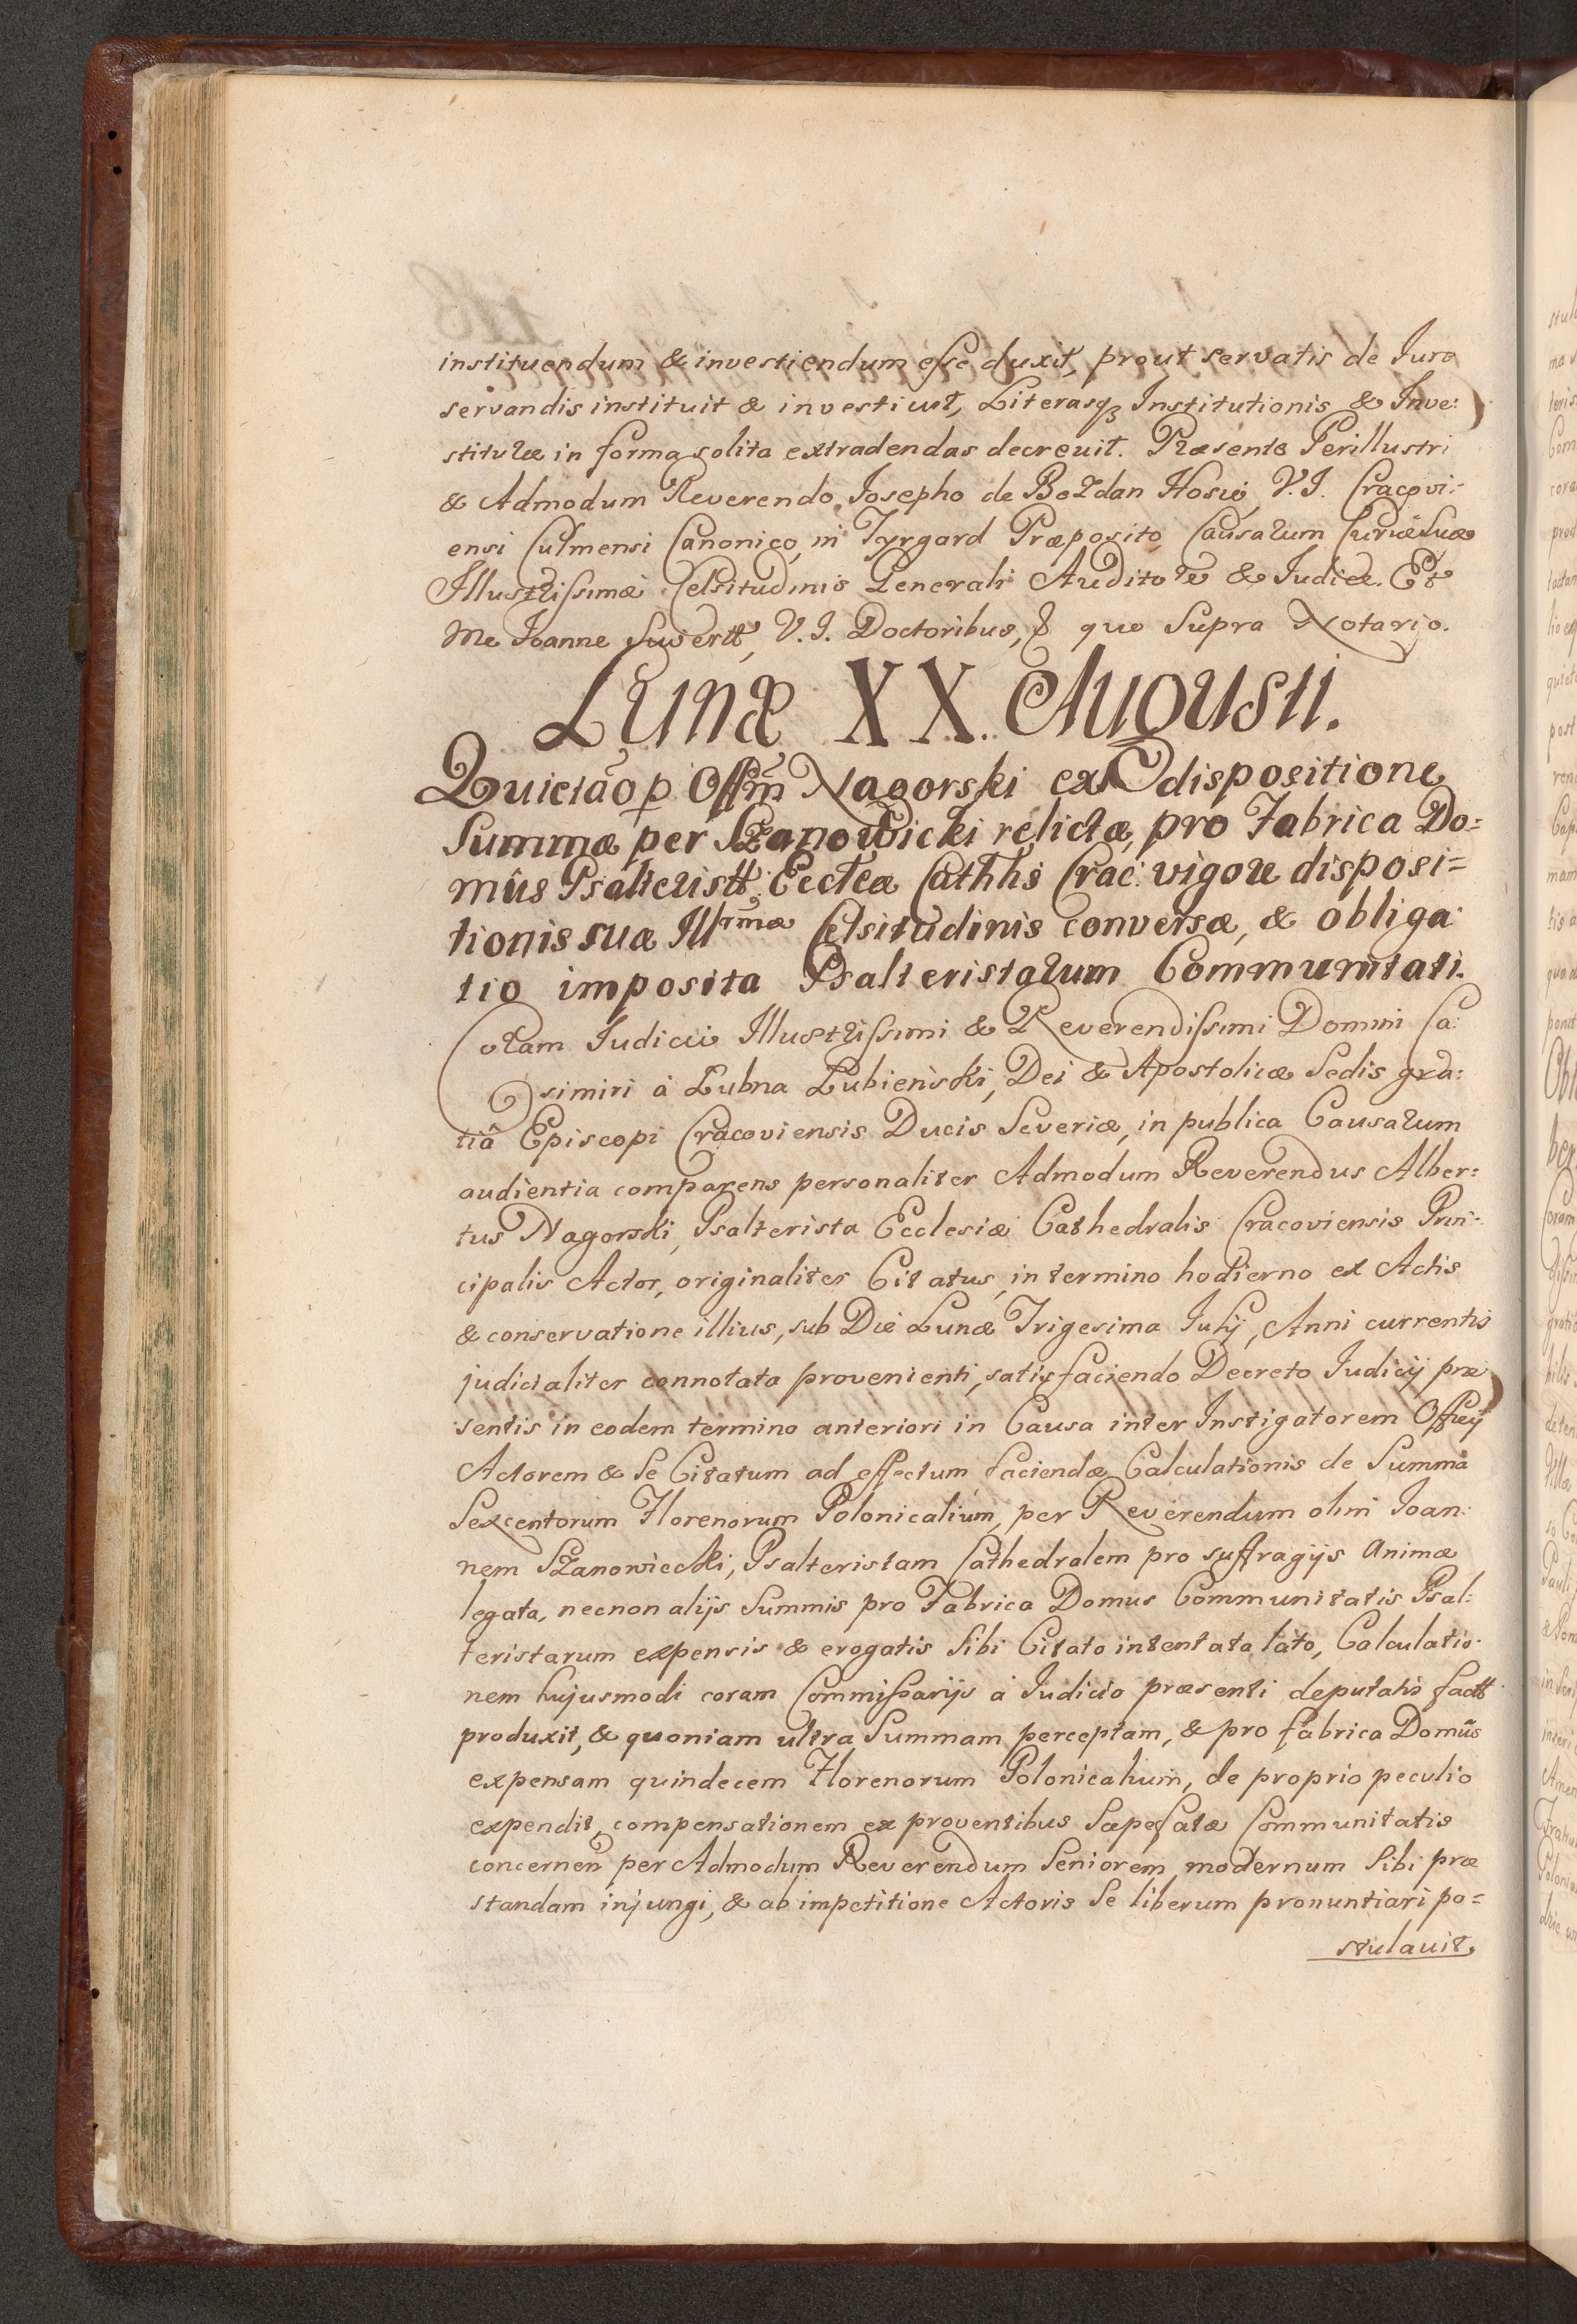 instituendum & investiendum esse duxit, prout servatis de Iure
servandis instituit & investiuit, Literasq3 Institutionis & Inve:
stituræ in forma solita extradendas decreuit. Præsente Perillustri
& Admodum Reverendo Iosepho de Bezdan Hosio, V.I. Cracovi-
ensi Culmensi Canonico, in Tyrgard Præposito, Causarum Curiæ Suæ
Illustrissimæ Celsitudinis Generali Auditore & Iudice. Et
Me Ioanne Suwertt, V.I. Doctoribus, & quo Supra Notario.
Lunæ XX. Augusti.
Quictão p Offm Nagorski ex dispositione
Summæ per Szanowicki relictæ, pro Fabrica Do=
mûs Psalteristt. Ecclæ Cathlis Crac. vigore disposi=
tionis suæ Illrmæ Celsitudinis conversæ, & obliga
tio imposita Psalteristarum Communitati.
Coram Iudicio Illustrissimi & Reverendissimi Domini Ca:
simiri à Lubna Lubieński, Dei & Apostolicæ Sedis gra:
tiâ Episcopi Cracoviensis Ducis Severiæ, in publica Causarum
audientia comparens personaliter Admodum Reverendus Alber:
tus Nagorski, Psalterista Ecclesiæ Cathedralis Cracoviensis Prin:
cipalis Actor, originaliter Citatus, in termino hodierno ex Actis
& conservatione illius, sub Die Lunæ Trigesima Iulij, Anni currentis
judicialiter connotata provenienti, satisfaciendo Decreto Iudicij præ
sentis in eodem termino anteriori in Causa inter Instigatorem Officij
Actorem & Se Citatum ad effectum faciendæ Calculationis de Summa
Sexcentorum Florenorum Polonicalium, per Reverendum olim Ioan:
nem Szanowiecki, Psalteristam Cathedralem pro suffragijs animæ
legata, necnon alijs Summis pro Fabrica Domus Communitatis Psal:
teristarum expensis & erogatis Sibi Citato intentata lato, Calculatio-
nem hujusmodi coram Commissarijs à Iudicio præsenti deputatis factt
produxit, & quoniam ultra Summam perceptam, & pro fabrica Domûs
expensam quindecem Florenorum Polonicalium, de proprio peculio
expendit, compensationem ex proventibus Sæpefatæ Communitatis
concernen per Admodum Reverendum Seniorem modernum Sibi præ
standam injungi, & ab impetitione Actoris Se liberum pronuntiari po=
stulauit.